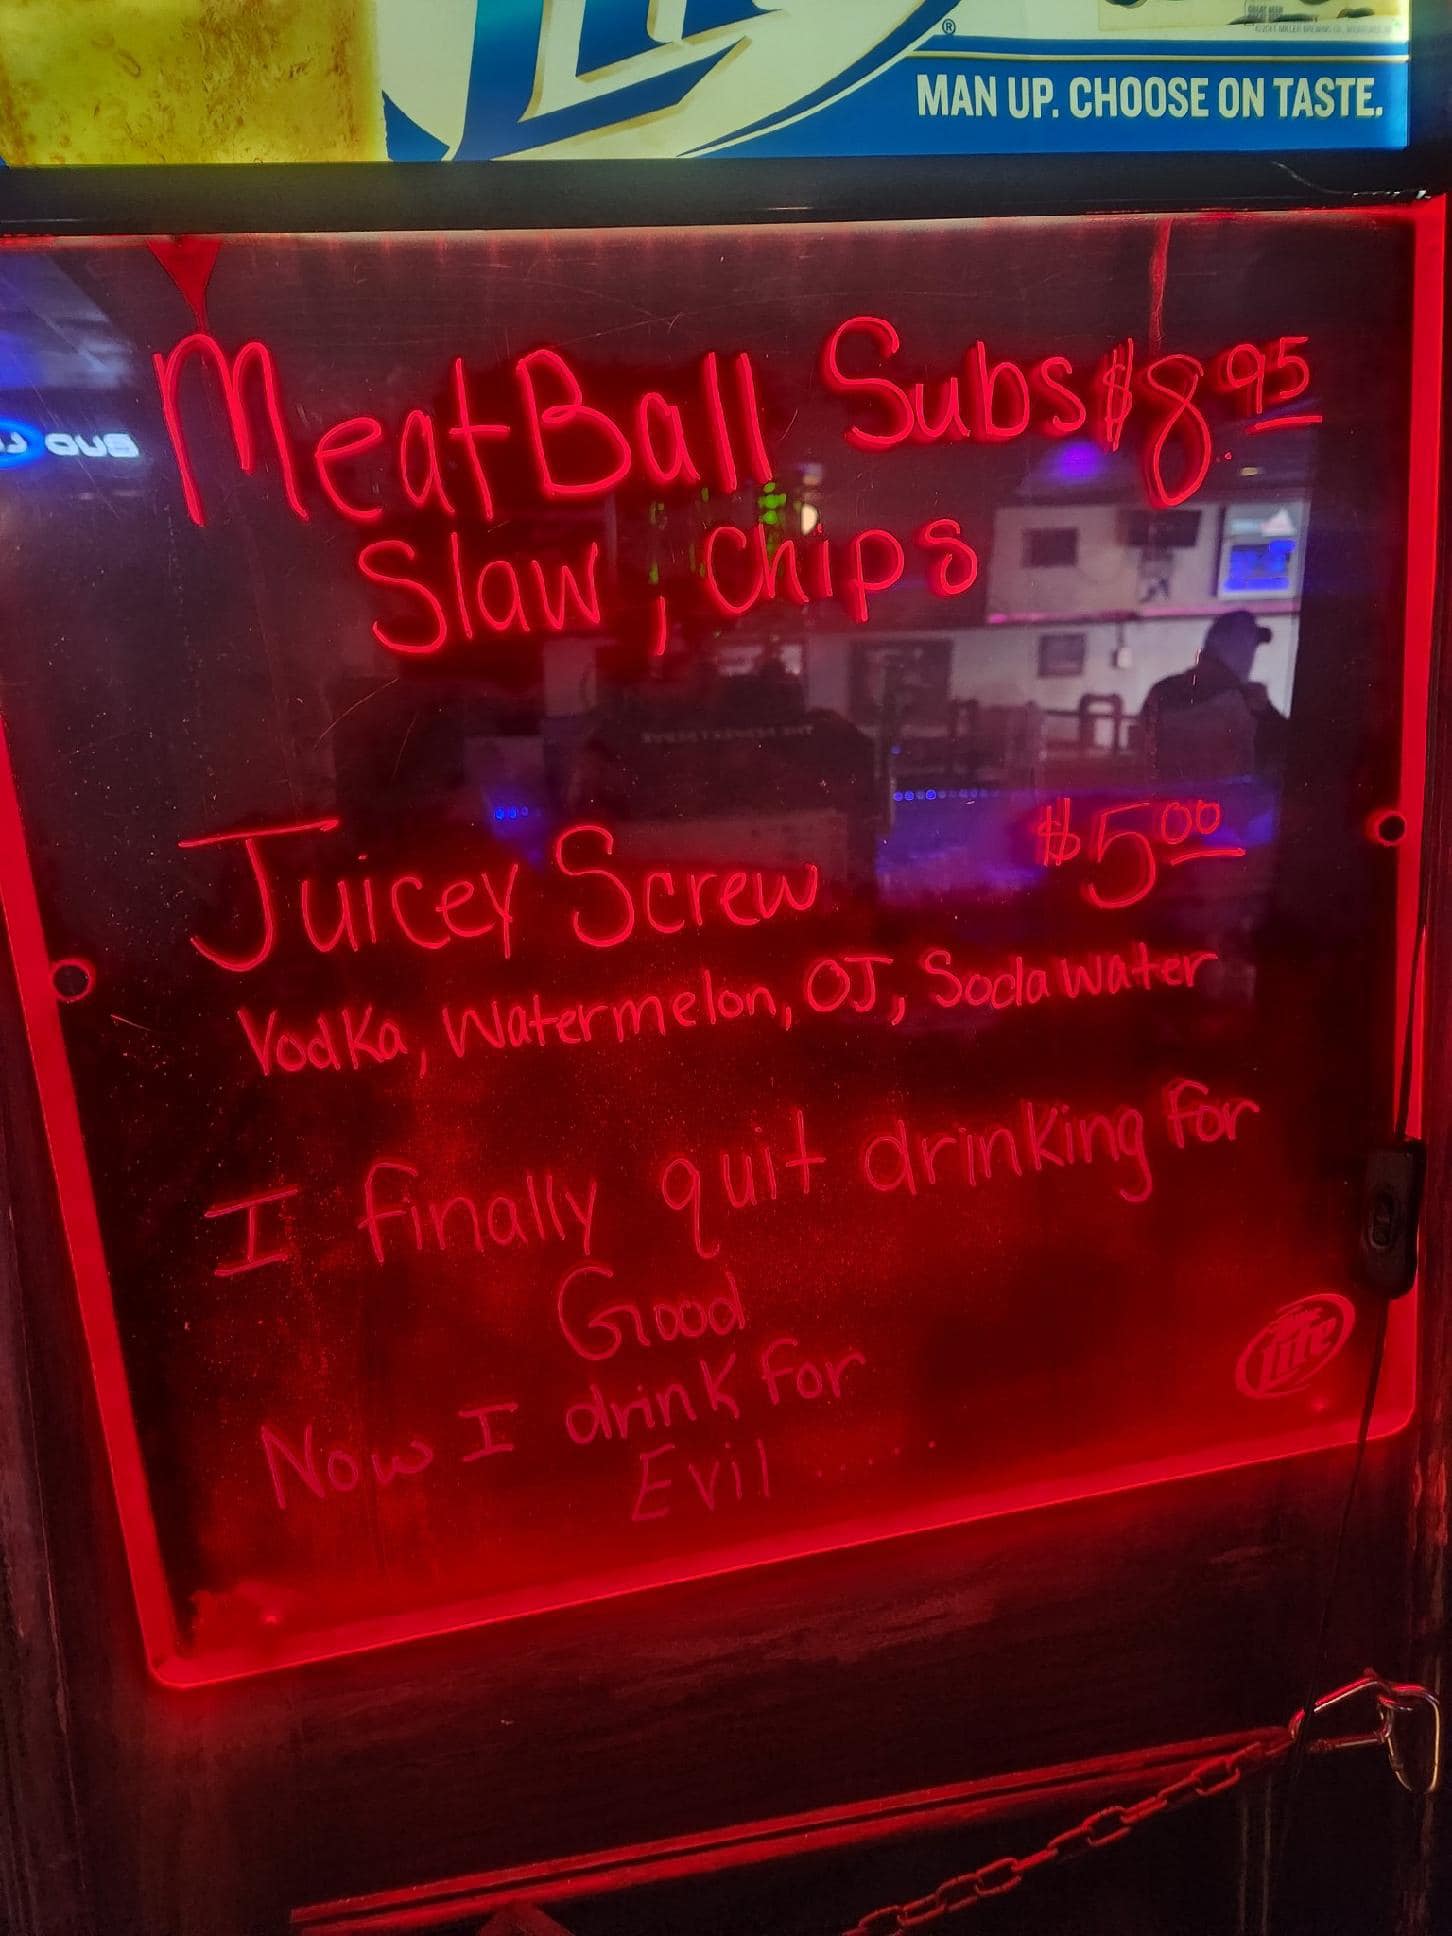 MAN UP. CHOOSE ON TASTE.
MeatBall Subs $8.95
Slaw, Chips
Juicey Screw $5.00
Vodka, Watermelon, OJ, Soda water
I finally quit drinking for
Good
Now I drink for
Evil ....
Lite